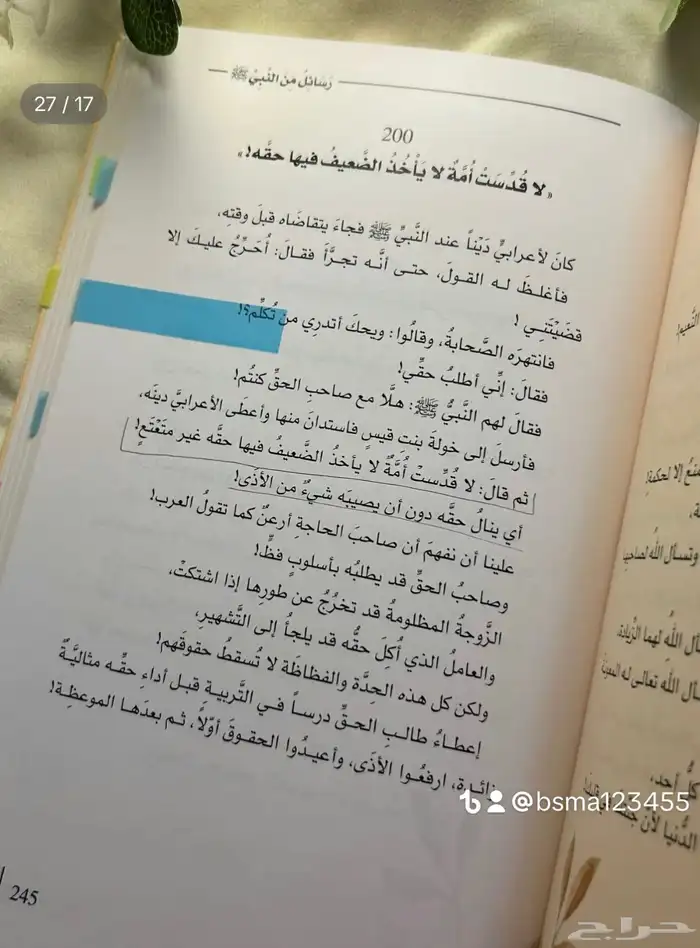 27 / 17
رَسَائِلُ مِنَ النَّبِيِّ ﷺ
200
«لا قُدِّسَتْ أُمَّةٌ لا يَأْخُذُ الضَّعيفُ فيها حقَّه!»
كانَ لأعرابيٍّ دَيْناً عند النَّبيِّ ﷺ فجاءَ يتقاضَاه قبلَ وقتِه،
فأغلـظَ لـه القـولَ، حتـى أنَّـه تجـرَّأَ فقـالَ: أُحَـرِّجُ عليـكَ إلا
قضَيْتَنِـي !
فانتهرَه الصَّحابةُ، وقالُوا: ويحكَ أتدرِي من تُكلِّم؟!
فقالَ: إنِّي أطلبُ حقِّي!
فقالَ لهم النَّبيُّ ﷺ: هلَّا مع صاحبِ الحقِّ كنتُم!
فأرسلَ إلى خولة بنتِ قيسٍ فاستدانَ منها وأعطَى الأعرابيَّ دينَه،
ثم قالَ: لا قُدِّستْ أُمَّةٌ لا يأخذُ الضَّعيفُ فيها حقَّه غير متَعْتَعٍ!
أي ينالُ حقَّه دون أن يصيبَه شيءٌ من الأذَى!
علينا أن نفهمَ أن صاحبَ الحاجةِ أرعنٌ كما تقولُ العرب!
وصاحبُ الحقِّ قد يطلبُه بأسلوبٍ فظٍّ!
الزَّوجةُ المظلومةُ قد تخرُجُ عن طورِها إذا اشتكتْ،
والعاملُ الذي أُكِلَ حقُّه قد يلجأُ إلى التَّشهيرِ،
ولكن كل هذه الحِدَّة والفظاظَة لا تُسقطُ حقوقَهم!
إعطـاءُ طالـبِ الحـقِّ درسـاً فـي التَّربيـةِ قبـل أداءِ حقِّـه مثاليَّـةٌ
زائـرة، ارفعُـوا الأذَى، وأعيـدُوا الحقـوقَ أوّلاً، ثـم بعدَهـا الموعظـة!
@bsma123455
245
النَّعيم!
إلا لحكمةٍ!
وتسألُ اللهَ لصاحبِها
اللهَ لهما الزِّيادة،
اللهَ تعالى له
كلُّ أحد،
الدُّنيا لأن
حراج